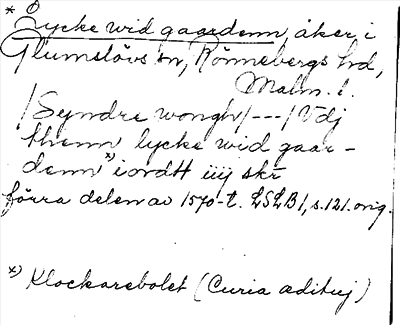 * Lycke wid gaardenn, åker i
Glumslövs sn, Rönnebergs hd,
Malm. l.
/Syndre wongh/---/Vdj
thenn lycke wid gaar-
denn*) iordtt iiij skr
förra delen av 1570-t. LSLB 1, s. 121. orig.
*) Klockarebolet (Curia ædituj)